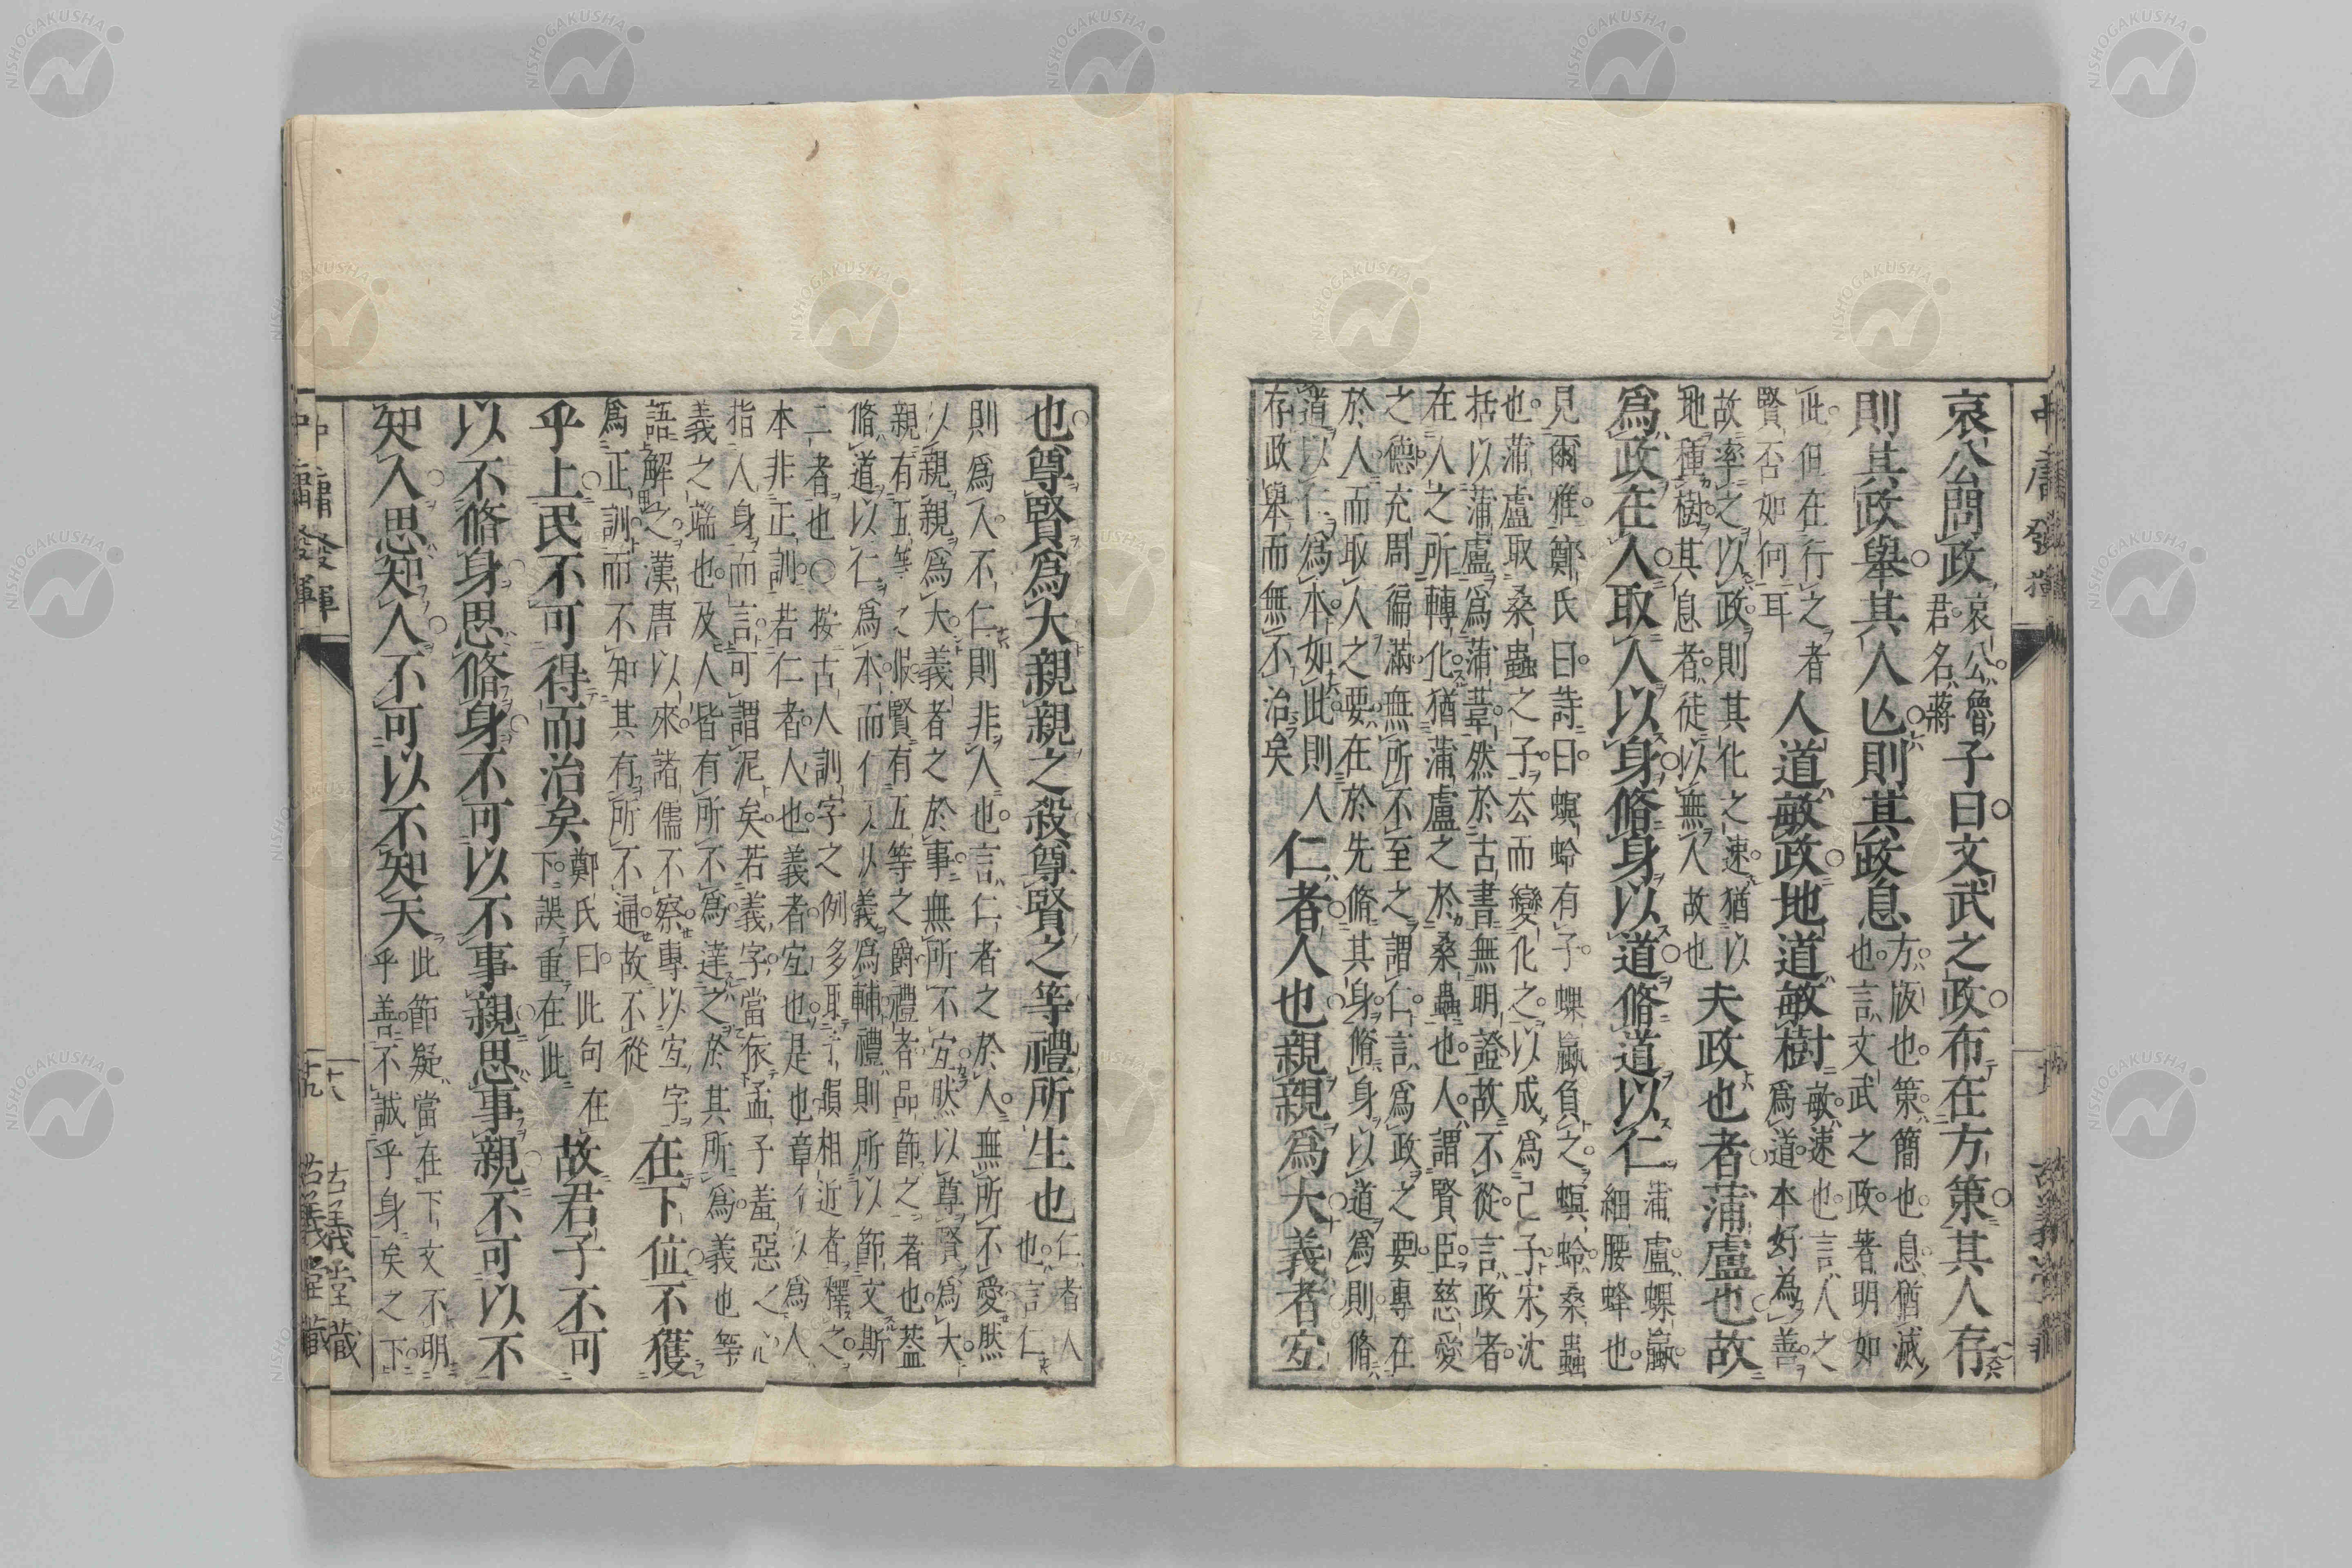 中庸發揮 古義堂藏
哀公問政
哀公魯
君名蔣
子曰文武之政布在方策其人存
則其政舉其人亾則其政息
方版也策簡也息猶滅
也言文武之政著明如
此但在行之者
賢否如何耳
人道敏政地道敏樹
敏速也言人之
爲道本好為善
故率之以政則其化之速猶以
地種樹其息者徒以無人故也
夫政也者蒲盧也故
爲政在人取人以身脩身以道脩道以仁
蒲盧蜾蠃
細腰蜂也
見爾雅鄭氏曰詩曰螟蛉有子蜾蠃負之螟蛉桑蟲
也蒲盧取桑蟲之子去而變化之以成爲己子宋沈
括以蒲盧爲蒲葦然於古書無明證故不從言政者
在人之所轉化猶蒲盧之於桑蟲也人謂賢臣慈愛
之德充周徧滿無所不至之謂仁言爲政之要專在
於人而取人之要在於先脩其身脩身以道爲則脩
道以仁爲本如此則人
存政舉而無不治矣
仁者人也親親爲大義者宜
也尊賢爲大親親之殺尊賢之等禮所生也
仁者人
也言仁
則爲人不仁則非人也言仁者之於人無所不愛然
以親親爲大義者之於事無所不宜然以尊賢爲大
親有五等之服賢有五等之爵禮者品節之者也蓋
脩道以仁爲本而仁又以義爲輔禮則所以節文斯
二者也○按古人訓字之例多取音韻相近者釋之
本非正訓若仁者人也義者宜也是也章句以爲人
指人身而言可謂泥矣若義字當依孟子羞惡之心
義之端也及人皆有所不爲達之於其所爲義也等
語解之漢唐以來諸儒不察專以宜字
爲正訓而不知其有所不通故不從
在下位不獲
乎上民不可得而治矣
鄭氏曰此句在
下誤重在此
故君子不可
以不脩身思脩身不可以不事親思事親不可以不
知人思知人不可以不知天
此節疑當在下文不明
乎善不誠乎身矣之下
中庸發揮 十八 古義堂藏
中庸發揮 十九 古義堂藏
NISHOGAKUSHA